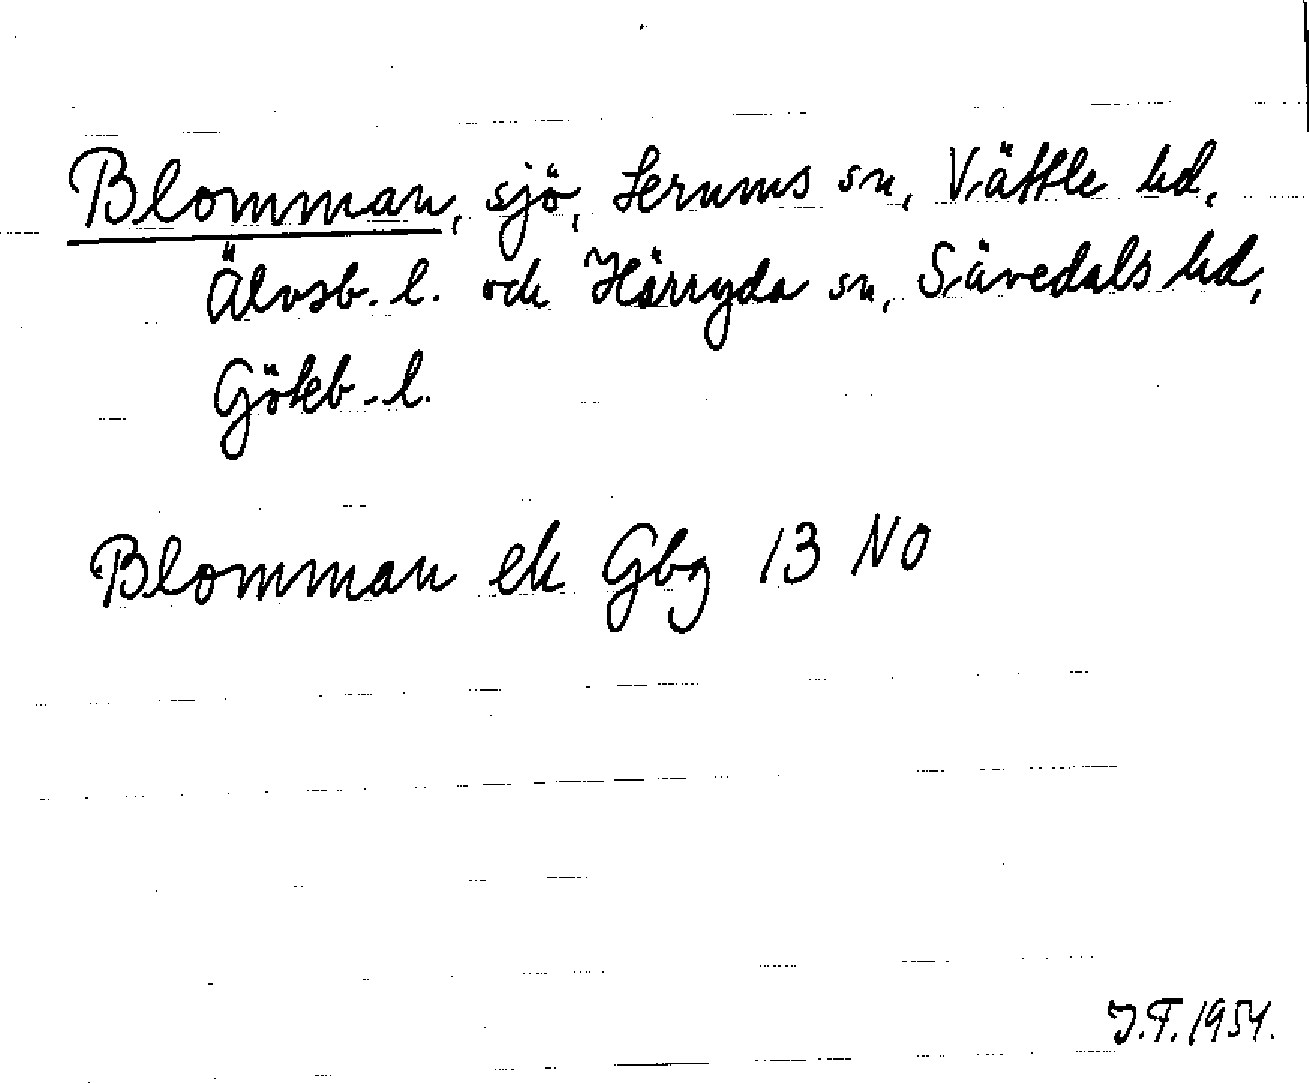 Blomman, sjö, Lerums sn, Vättle hd,
Älvsb. l. och Härryda sn, Sävedals hd,
Göteb. l.
Blomman ek Gbg 13 NO
J.F. 1954.